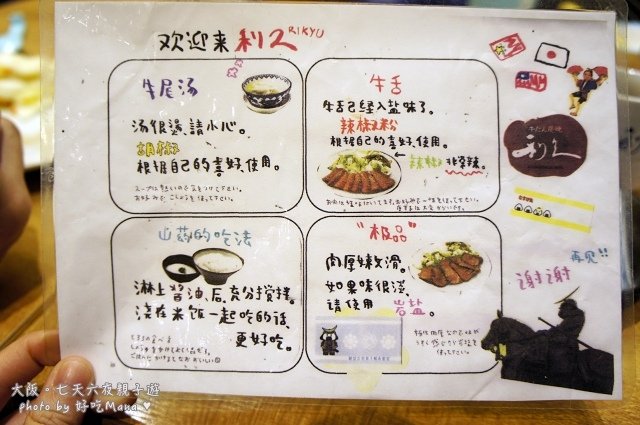 欢迎来 利久 RIKYU
牛尾汤
汤很烫,請小心。
胡椒
根据自己的喜好,使用。
スープは熱いので気をつけて下さい。
お好みで こしょうを使って下さい。
牛舌
牛舌已経入盐味了。
辣椒粉
根据自己的喜好,使用。
辣椒 非常辣。
山药的吃法
淋上酱油、后,充分搅拌。
浇在米饭一起吃的话,
更好吃。
"极品"
肉厚嫩滑。
如果味很淡,
请使用 岩盐
牛たん炭焼
利久
再见!!
谢谢
大阪。七天六夜親子遊
photo by 好吃Mana